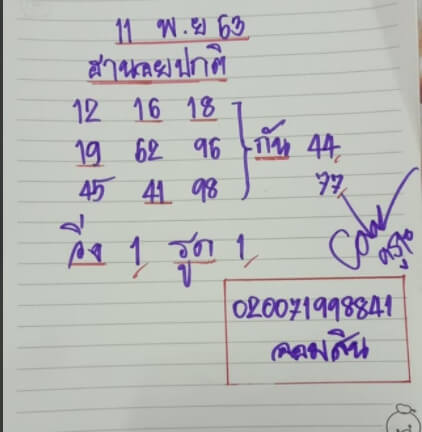 11 พ.ย 63
ฮานอยปกติ
12 16 18
19 62 96 กัน 44
45 41 98 77
วิ่ง 1 รูด 1
020071998841
ออมสิน